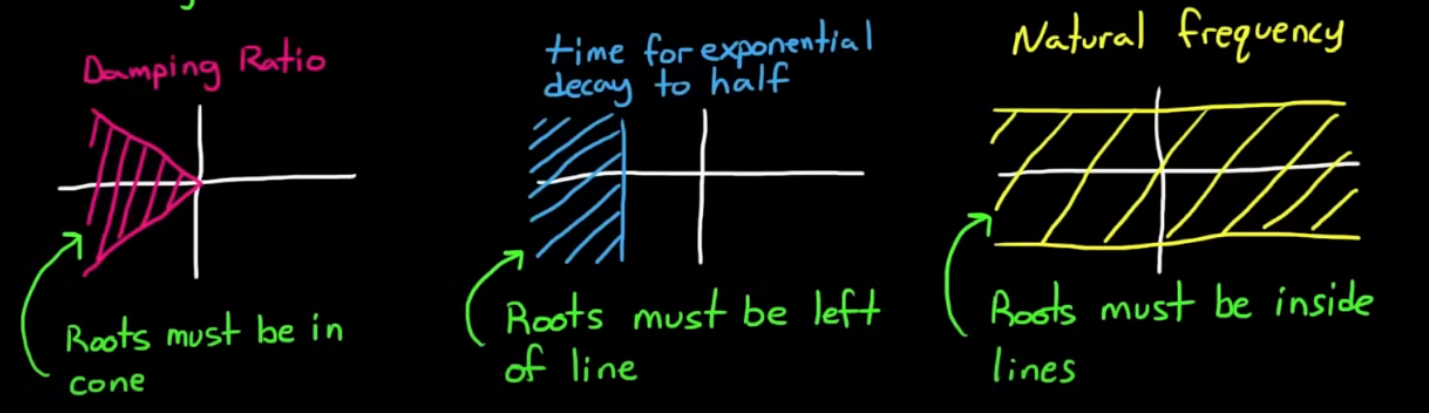 Damping Ratio
Roots must be in
cone
time for exponential
decay to half
Roots must be left
of line
Natural frequency
Roots must be inside
lines